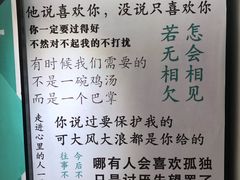 他说喜欢你，没说只喜欢你
你一定要过得好
不然对不起我的不打扰
有时候我们需要的
不是一碗鸡汤
而是一个巴掌
若无相欠
怎会相见
你说过要保护我的
可大风大浪都是你给的
走进心里的人
今后不
往事不
哪有人会喜欢孤独
只是讨厌失望罢了